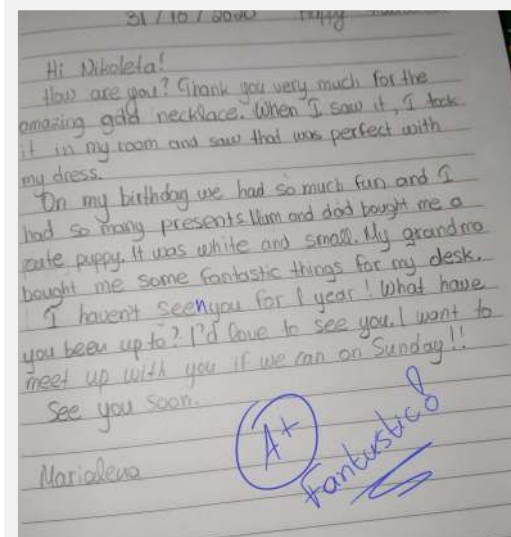 31/10/2020 Happy
Hi Nikoleta!
How are you? Thank you very much for the
amazing gold necklace. When I saw it, I took
it in my room and saw that was perfect with
my dress.
On my birthday we had so much fun and I
had so many presents. Mum and dad bought me a
cute puppy. It was white and small. My grandma
bought me some fantastic things for my desk.
I haven't seen you for 1 year! What have
you been up to? I'd love to see you. I want to
meet up with you if we can on Sunday!!
See you soon.
Marialena
A+
Fantastic!